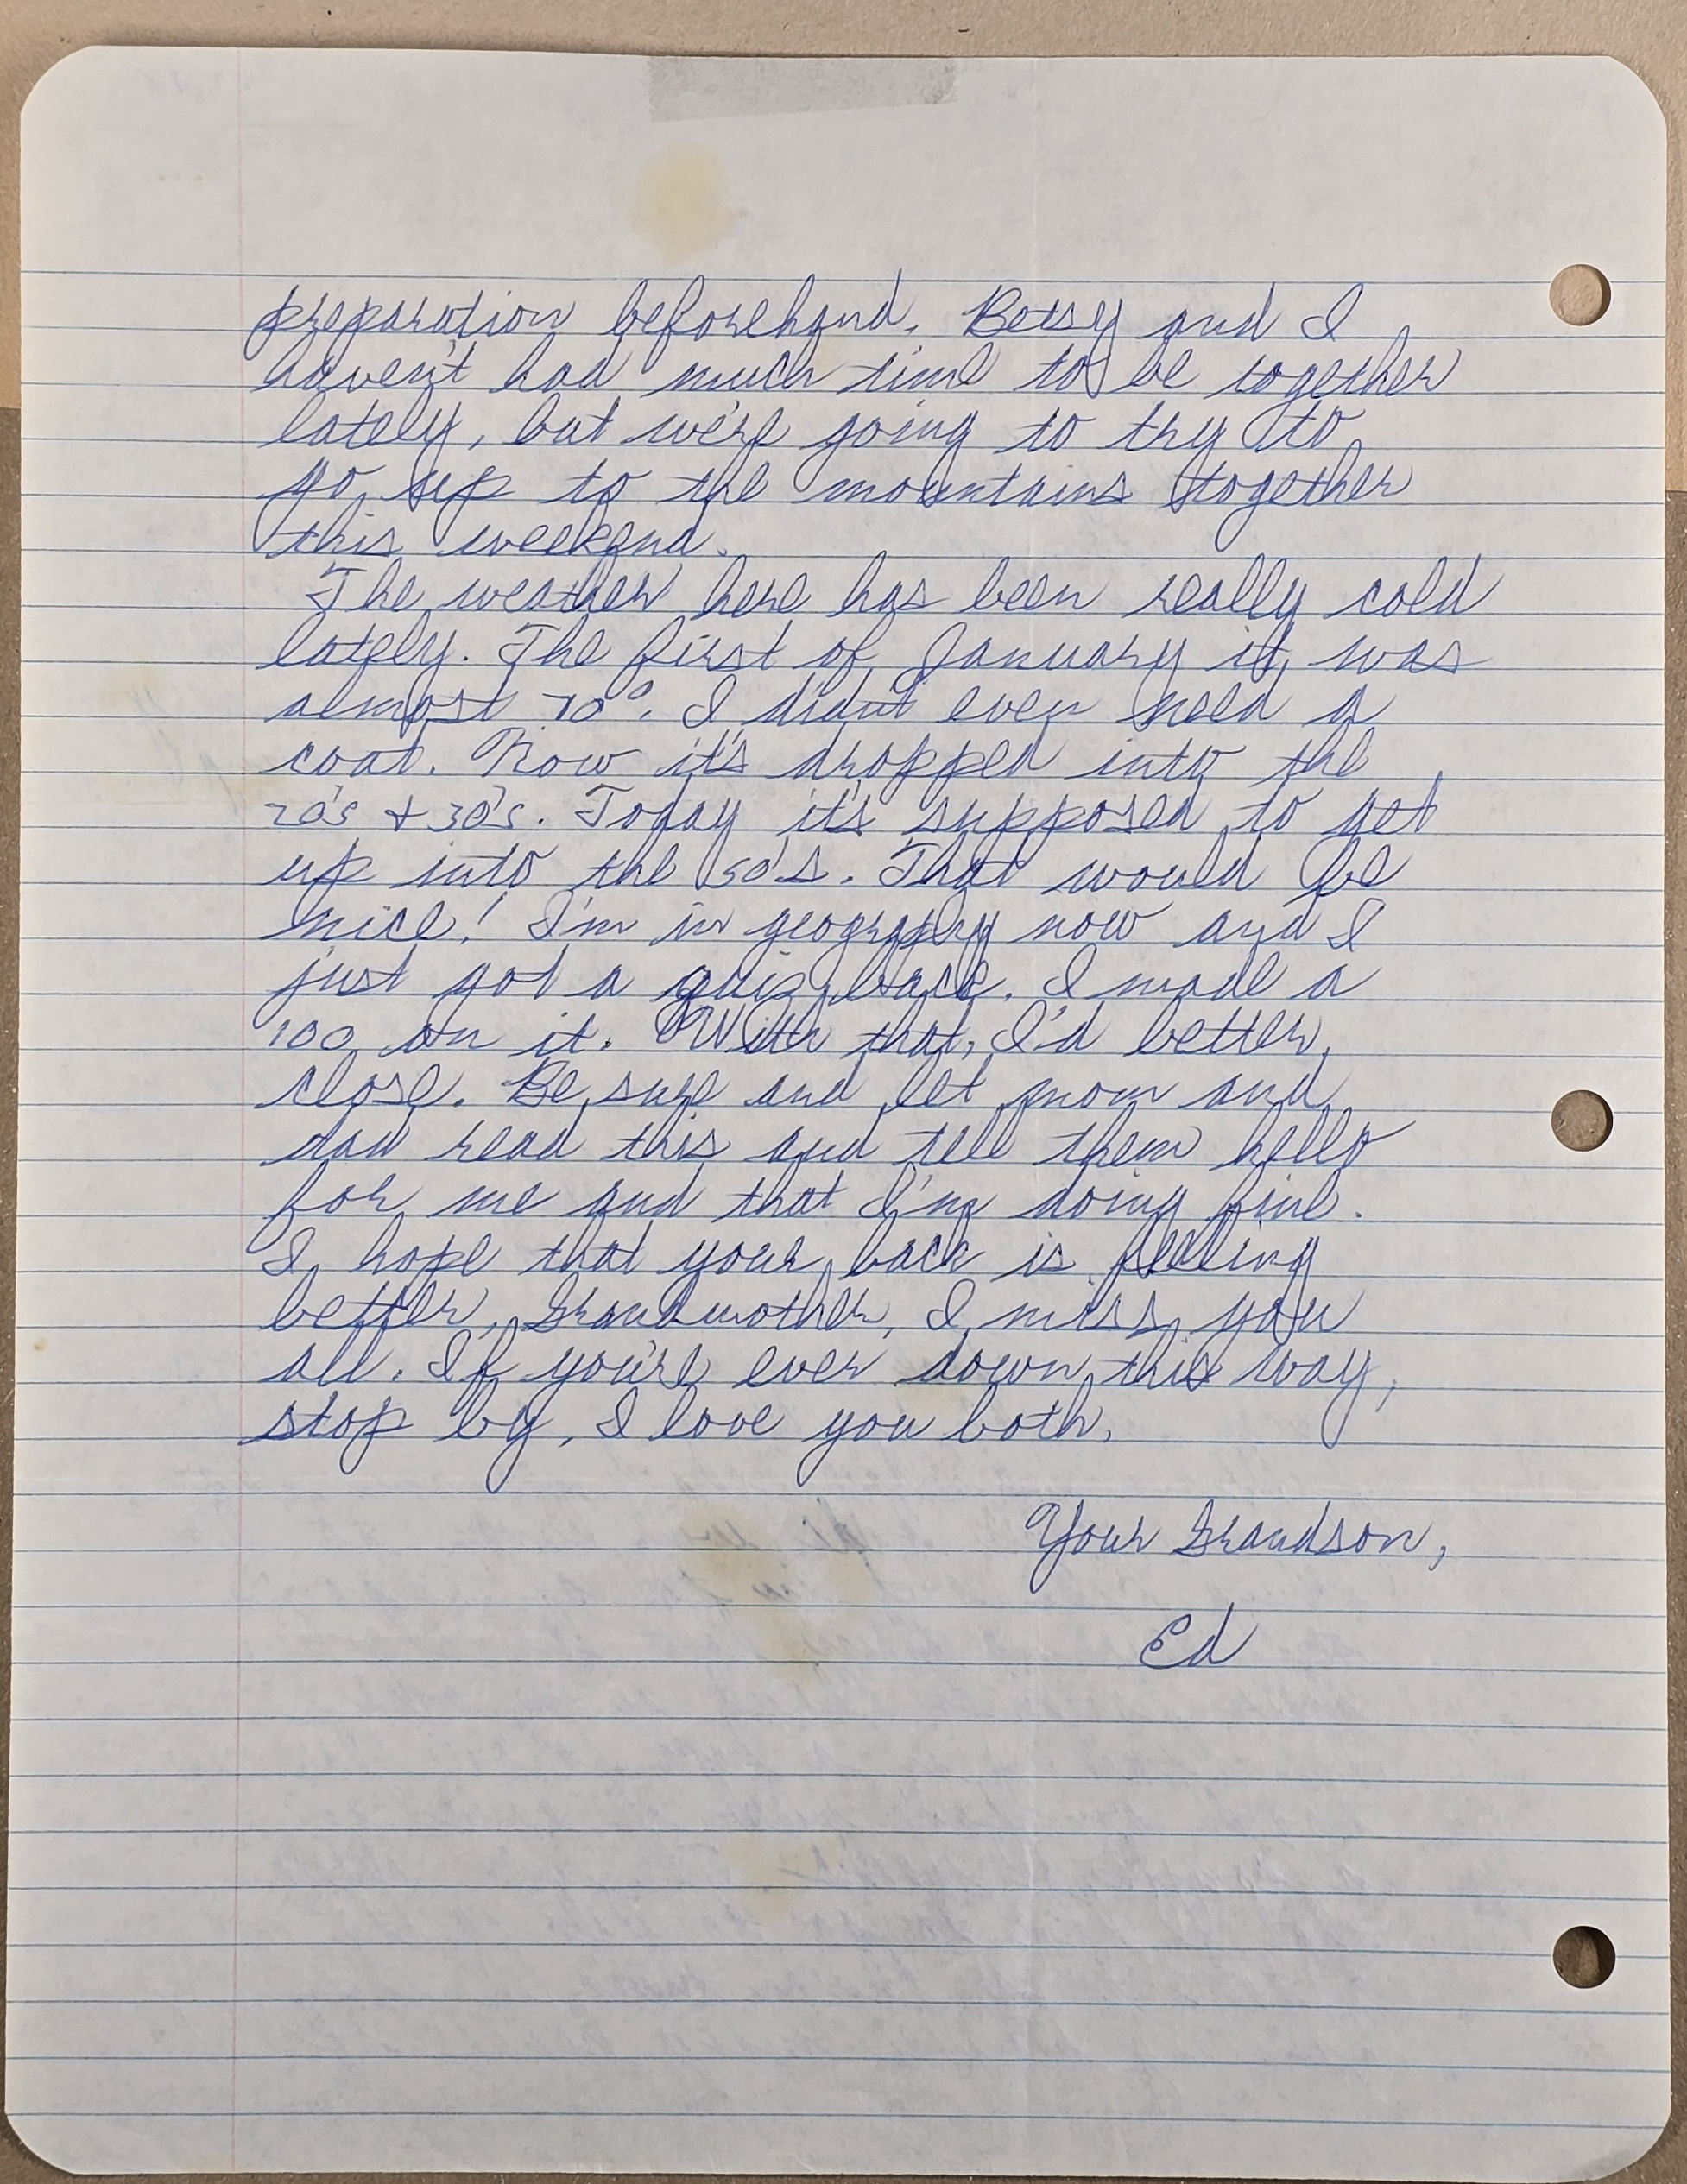 preparation beforehand. Betsy and I
haven't had much time to be together
lately, but we're going to try to
go up to the mountains together
this weekend.
The weather here has been really cold
lately. The first of January it was
almost 70°. I didn't even need a
coat. Now it's dropped into the
20's + 30's. Today it's supposed to get
up into the 50's. That would be
nice! I'm in geography now and I
just got a quiz back. I made a
100 on it. With that, I'd better
close. Be sure and let mom and
dad read this and tell them hello
for me and that I'm doing fine.
I hope that your back is feeling
better, Grandmother, I miss you
all. If you're ever down this way,
stop by, I love you both.
Your Grandson,
Ed